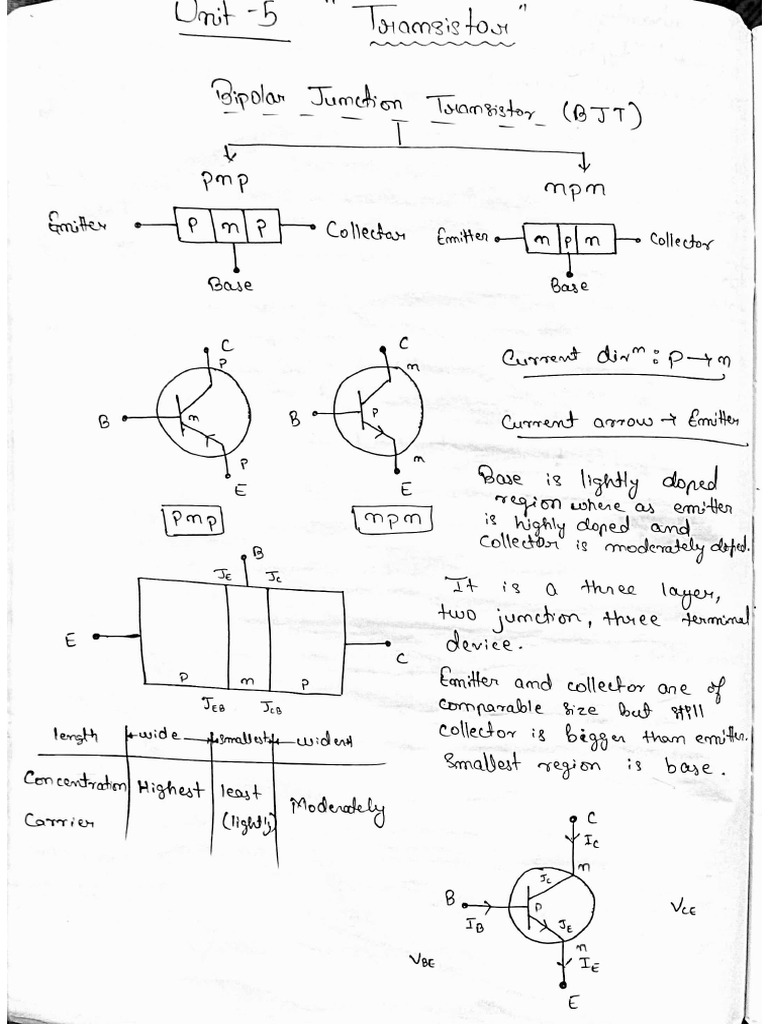 Unit -5 "Transistor"
Bipolar Junction Transistor (BJT)
pnp
npn
Emitter p n p Collector
Base
Emitter n p n Collector
Base
C
p
B n
p
E
pnp
C
n
B p
n
E
npn
Current dirn : p → n
Current arrow → Emitter
Base is lightly doped
region where as emitter
is highly doped and
collector is moderately doped.
B
JE JC
E C
p n p
JEB JCB
It is a three layer,
two junction, three terminal
device.
Emitter and collector are of
comparable size but still
collector is bigger than emitter.
Smallest region is base.
length wide smallest widest
Concentration Highest least Moderately
Carrier (lightly)
C
IC
n
JC
B p
IB JE
n
IE
E
VCE
VBE